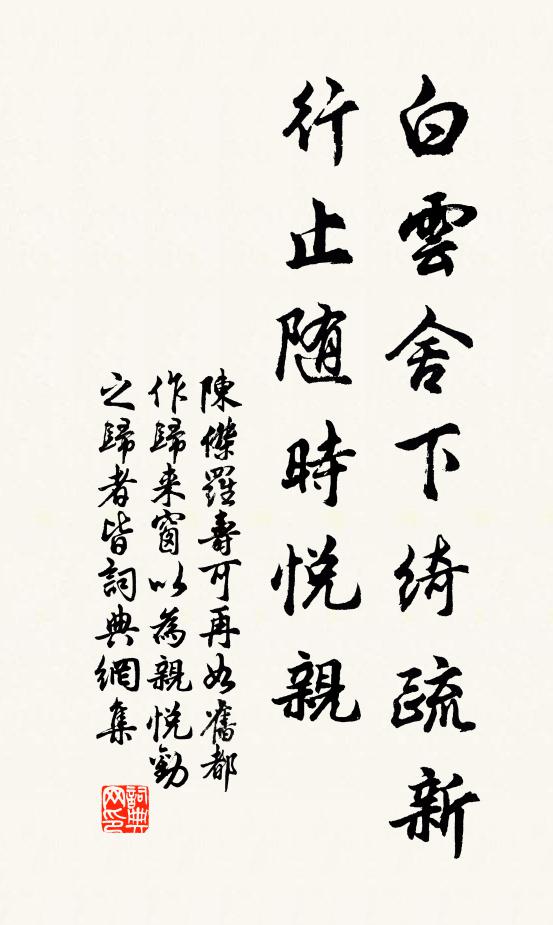 白雲舍下綺疏新
行止随時悦親
陳傑羅壽可再如舊都
作歸来窗以為親悦勸
之歸者皆詞典網集
詞典
网印